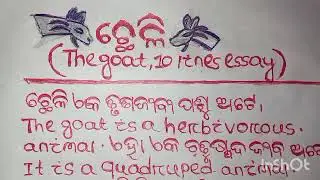 ଛେଳି
(The goat, 10 lines essay)
ଛେଳି ଏକ ତୃଣଭୋଜୀ ପଶୁ ଅଟେ।
The goat is a herbivorous
animal. ଏହା ଏକ ଚତୁଷ୍ପଦ ଜୀବ ଅଟେ
It is a quadruped animal
InShOt